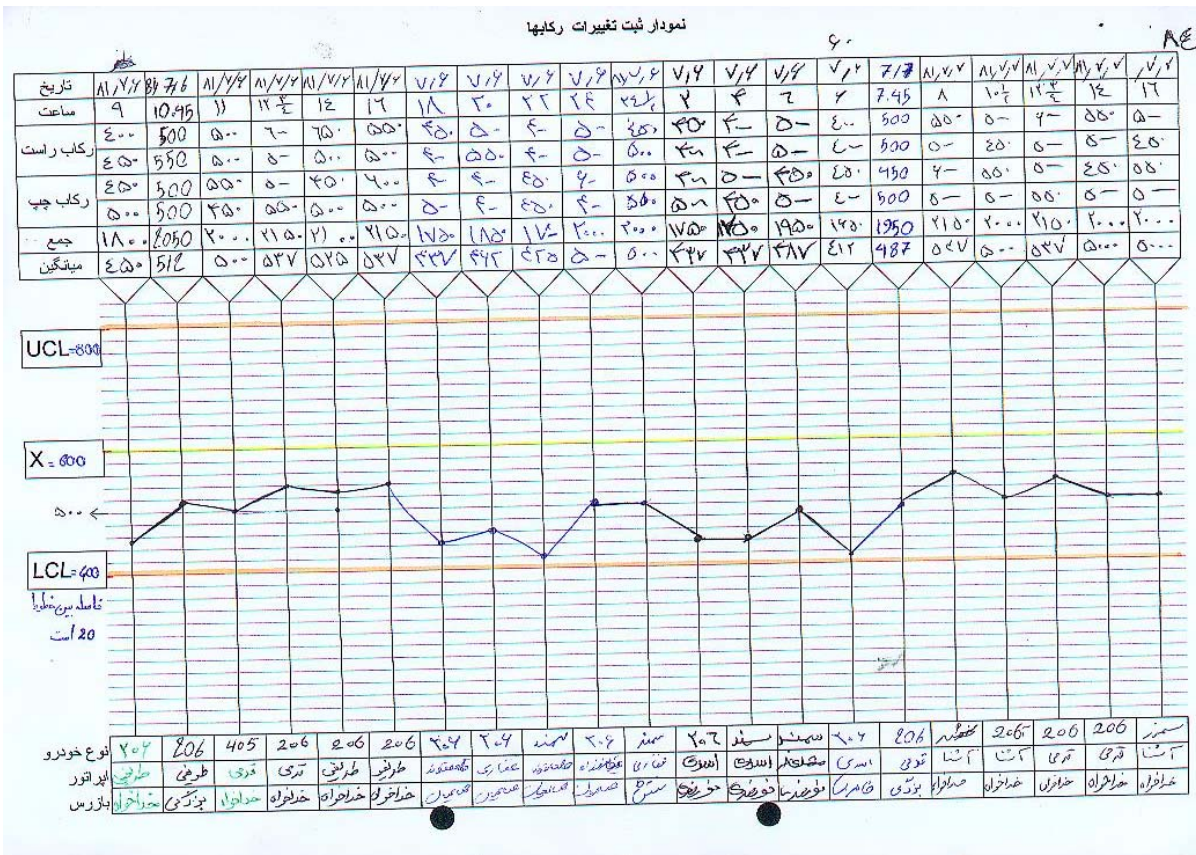 نمودار ثبت تغییرات رکابها
۶۰
تاریخ ۸۱,۷,۶ 81,7/6 ۸۱/۷/۶ ۸۱/۷/۶ ۸۱/۷/۶ ۸۱/۷/۶ ۷,۶ ۷,۶ ۷,۶ ۷,۶ ۸۱,۷,۶ ۷,۶ ۷,۶ ۷,۶ ۷,۶ 7/7 ۸۱,۷,۷ ۸۱,۷,۷ ۸۱,۷,۷ ۸۱,۷,۷
ساعت ۹ 10.45 ۱۱ ۱۴ ۱۶ ۱۸ ۲۰ ۲۲ ۲۴ ۲ ۴ ۶ 7.45 ۸ ۱۰ ۱/۲ ۱۴ ۱۶
رکاب راست ۴۰۰ 500 ۵۰۰ ۶۰۰ ۶۵۰ ۵۵۰ ۴۵۰ ۵۰۰ ۴۰۰ ۵۰۰ ۴۵۰ ۴۵۰ ۴۰۰ ۵۰۰ ۴۰۰ 500 ۵۵۰ ۵۰۰ ۶۰۰ ۵۵۰ ۵۰۰
۴۵۰ 550 ۵۰۰ ۵۰۰ ۵۰۰ ۵۰۰ ۴۰۰ ۵۵۰ ۴۰۰ ۵۰۰ ۵۰۰ ۴۰۰ ۴۰۰ ۵۰۰ ۴۰۰ 500 ۵۰۰ ۴۵۰ ۵۰۰ ۵۰۰ ۴۵۰
رکاب چپ ۴۵۰ 500 ۵۵۰ ۵۰۰ ۴۵۰ ۶۰۰ ۴۰۰ ۴۰۰ ۴۵۰ ۶۰۰ ۵۰۰ ۴۰۰ ۵۰۰ ۴۵۰ ۴۵۰ 450 ۶۰۰ ۵۵۰ ۵۰۰ ۴۵۰ ۵۵۰
۵۰۰ 500 ۴۵۰ ۵۵۰ ۵۰۰ ۵۰۰ ۵۰۰ ۴۰۰ ۴۵۰ ۴۰۰ ۵۵۰ ۵۰۰ ۴۵۰ ۵۰۰ ۴۰۰ 500 ۵۰۰ ۵۰۰ ۵۵۰ ۵۰۰ ۵۰۰
جمع ۱۸۰۰ 2050 ۲۰۰۰ ۲۱۵۰ ۲۱۰۰ ۲۱۵۰ ۱۷۵۰ ۱۸۵۰ ۱۷۰۰ ۲۰۰۰ ۲۰۰۰ ۱۷۵۰ ۱۷۵۰ ۱۹۵۰ ۱۶۵۰ 1950 ۲۱۵۰ ۲۰۰۰ ۲۱۵۰ ۲۰۰۰ ۲۰۰۰
میانگین ۴۵۰ 512 ۵۰۰ ۵۳۷ ۵۲۵ ۵۳۷ ۴۳۷ ۴۶۲ ۴۲۵ ۵۰۰ ۵۰۰ ۴۳۷ ۴۳۷ ۴۸۷ ۴۱۲ 487 ۵۳۷ ۵۰۰ ۵۳۷ ۵۰۰۰ ۵۰۰۰
UCL=800
X=600
۵۰۰ ←
LCL=400
فاصله بین خطوط
20 است
نوع خودرو ۲۰۶ 206 405 206 206 206 ۲۰۶ ۲۰۶ سمند ۲۰۶ سمند ۲۰۶ سمند سمند ۲۰۶ 206 206 206 206 سمند
اپراتور طریقی طریقی قدری قدری طریقی طریقی غفاری غفاری اسدی اسدی اسدی قدری آشنا آشنا قدری قدری آشنا
بازرس خداخواه بزرگی خداخواه خداخواه خداخواه خداخواه بزرگی خداخواه خداخواه خداخواه خداخواه خداخواه